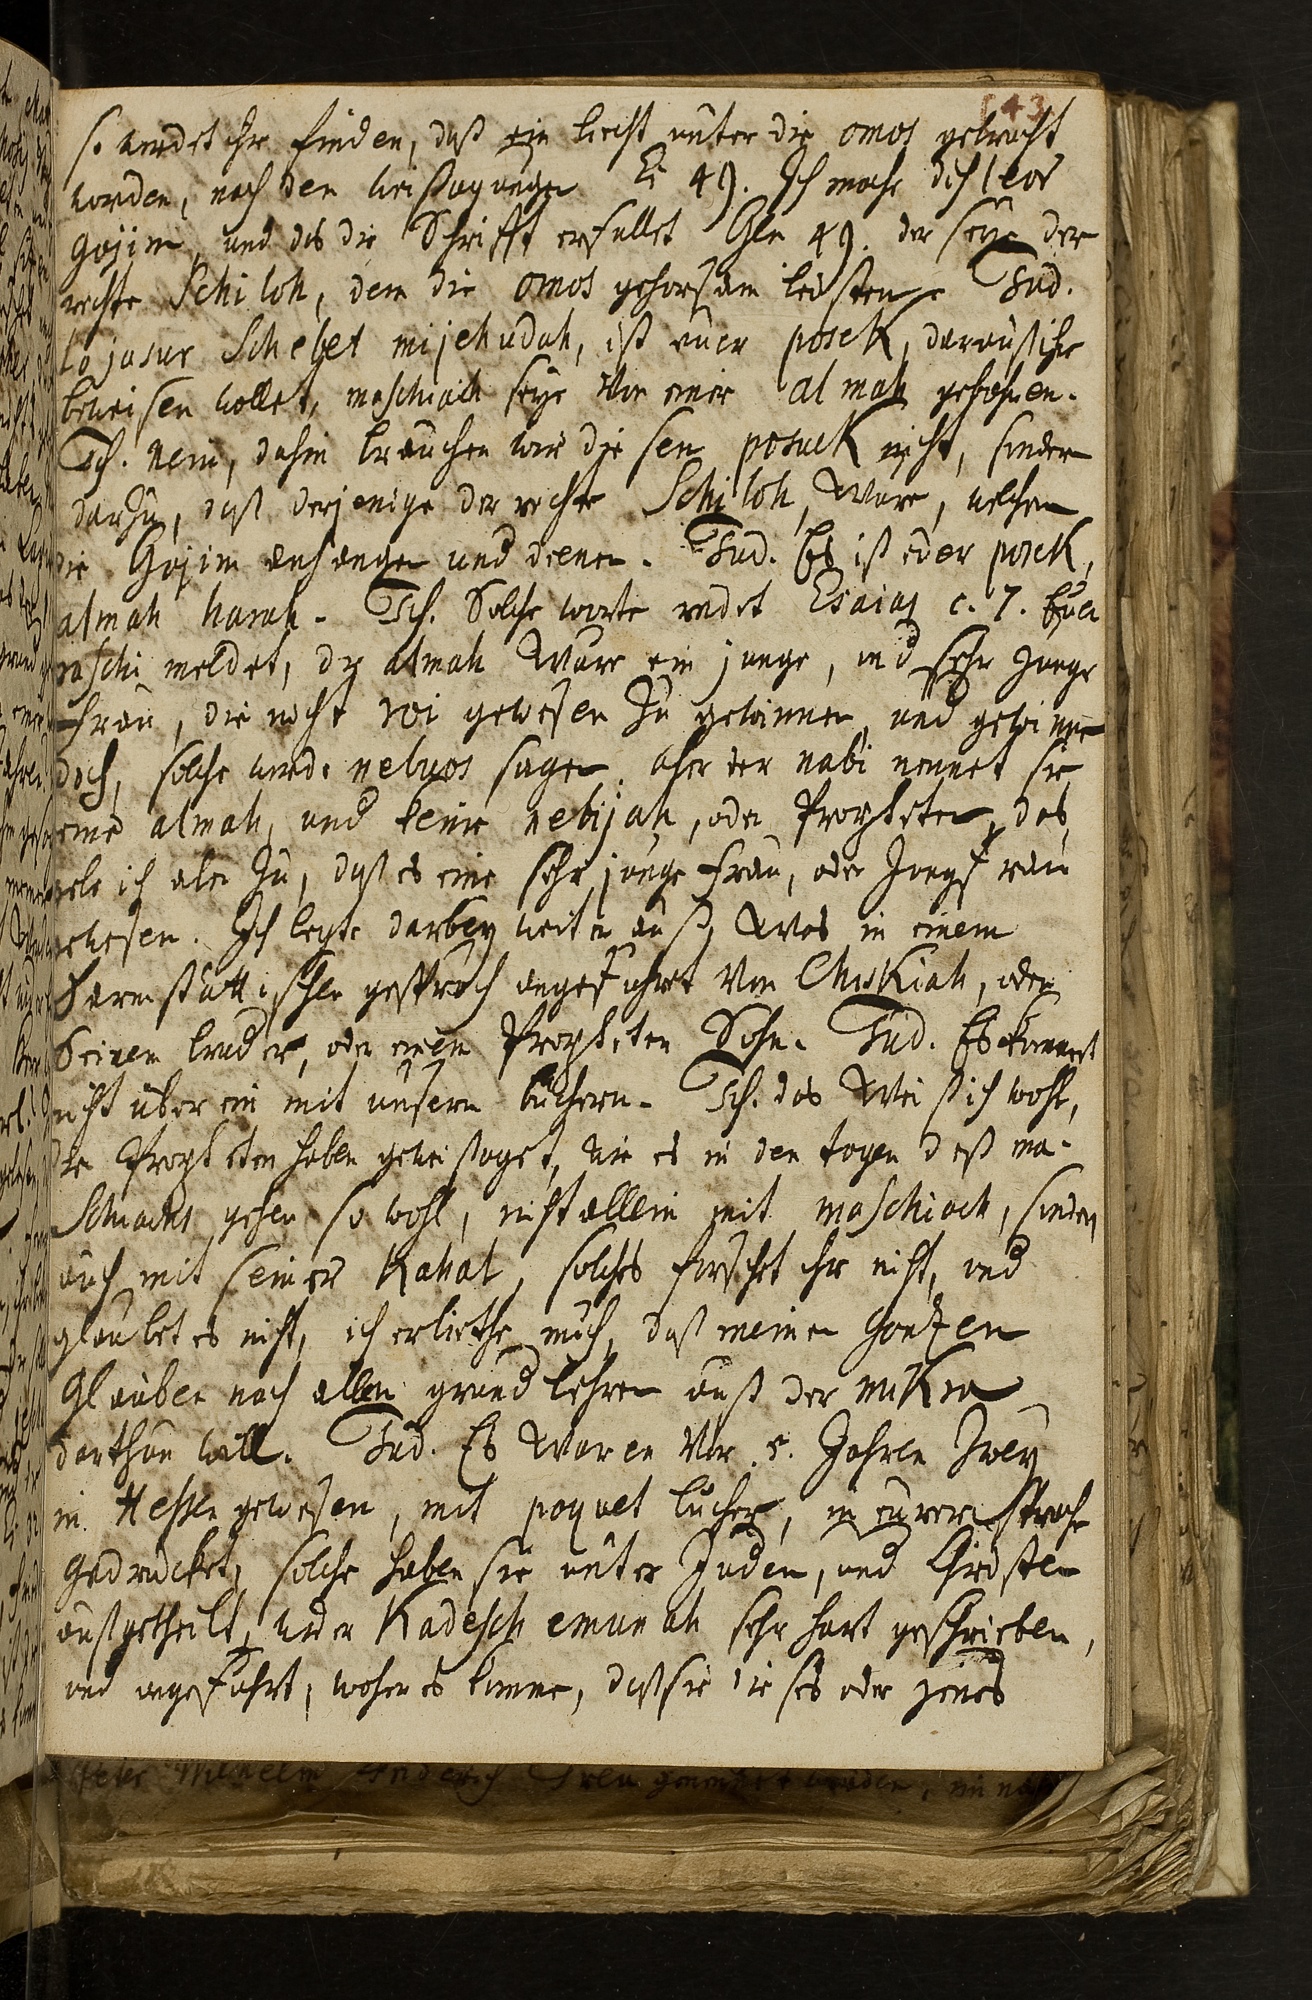 143
so werdet ihr finden, daß ein liecht unter die omos gebracht
worden, nach den weissagungen Es 49. Ich mache dich leor
gojim, und das die Schrifft erfullet Gen 49. der seye der
rechte Schiloh, dem die omos gehorsam leisten. Jud.
lo jasur Schebet mijehudah, ist euer posek, darauß ihr
beweisen wollet, maschiach seye von einer almah gebohren.
Ich. nein, dahin brauchen wir diesen posuck nicht, sondern
darzu, daß derjenige der rechte Schiloh, ware, welchem
die Gojim anhangen und dienen. Jud. Es ist eder posek,
almah harah. Ich. Solche worte redet Esaias c. 7. Euer
raschi meldet, dz almah ware ein junge, und sehr junge
frau, die nicht roi gewesen zu gewinnen, und gewinne
doch, solche werde nebuos sagen. aber der nabi nennet sie
eine almah, und keine nebijah, oder Propheten, das
gebe ich aber zu, daß es eine sehr junge frau, oder Jungfrau
gewesen. Ich legte darbey weiter auß, was in einem
Darmstattischen gespräch angeführt von Chiskiah, oder
seinem bruder, oder einem Propheten Sohn. Jud. Es kommet
nicht überein mit unsern büchern. Ich. das weiß ich wohl,
die Propheten haben geweissaget, wie es in den tagen deß ma-
Schiachs gehen so wohl, nicht allein mit maschiach, sondern
auch mit seiner Kahal, solches forschet ihr nicht, und
glaubet es nicht, ich erbiethe mich, daß meinen gantzen
Glauben nach allen grundlehren auß der mikra
darthun will. Jud. Es waren vor 5. Jahren Zwey
in Hessen gewesen, mit paquet bücher, in eurer sprach
gedrucket, solche haben sie unter Juden, und Christen
außgetheilt, wider Kadesch emunah sehr hart geschrieben,
und angeführt, woher es komme, daß sie dieses oder jenes